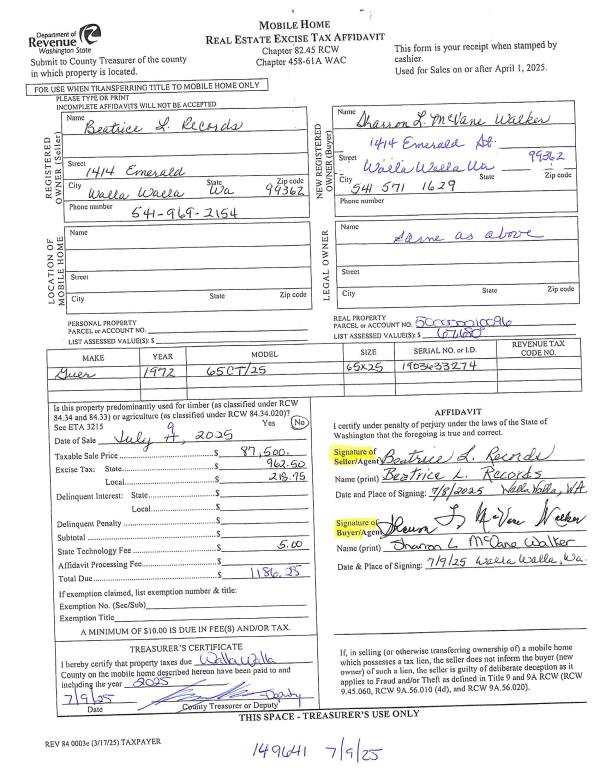 Department of
Revenue
Washington State
Submit to County Treasurer of the county
in which property is located.
MOBILE HOME
REAL ESTATE EXCISE TAX AFFIDAVIT
Chapter 82.45 RCW
Chapter 458-61A WAC
This form is your receipt when stamped by
cashier.
Used for Sales on or after April 1, 2025.
FOR USE WHEN TRANSFERRING TITLE TO MOBILE HOME ONLY
PLEASE TYPE OR PRINT
INCOMPLETE AFFIDAVITS WILL NOT BE ACCEPTED
REGISTERED
OWNER (Seller)
Name
Beatrice L. Records
Street
1414 Emerald
City State Zip code
Walla Walla Wa 99362
Phone number
541-969-2154
NEW REGISTERED
OWNER (Buyer)
Name
Sharron L. McVane Walker
1414 Emerald St.
Street
Walla Walla Wa 99362
City State Zip code
541 571 1629
Phone number
LOCATION OF
MOBILE HOME
Name
Street
City State Zip code
LEGAL OWNER
Name
Same as above
Street
City State Zip code
PERSONAL PROPERTY
PARCEL or ACCOUNT NO.
LIST ASSESSED VALUE(S): $
REAL PROPERTY
PARCEL or ACCOUNT NO.
LIST ASSESSED VALUE(S): $
MAKE YEAR MODEL SIZE SERIAL NO. or I.D. REVENUE TAX CODE NO.
Guer 1972 65CT/25 65X25 1903633274
Is this property predominately used for timber (as classified under RCW
84.34 and 84.33) or agriculture (as classified under RCW 84.34.020)?
See ETA 3215 Yes No
Date of Sale July 9, 2025
Taxable Sale Price $ 87,500.
Excise Tax: State $ 962.50
Local $ 218.75
Delinquent Interest: State $
Local $
Delinquent Penalty $
Subtotal $
State Technology Fee $ 5.00
Affidavit Processing Fee $
Total Due $ 1186.25
If exemption claimed, list exemption number & title:
Exemption No. (Sec/Sub)
Exemption Title
A MINIMUM OF $10.00 IS DUE IN FEE(S) AND/OR TAX.
TREASURER'S CERTIFICATE
I hereby certify that property taxes due Walla Walla
County on the mobile home described hereon have been paid to and
including the year 2025
7/9/25 Deputy
Date County Treasurer or Deputy
AFFIDAVIT
I certify under penalty of perjury under the laws of the State of
Washington that the foregoing is true and correct.
Signature of
Seller/Agent Beatrice L. Records
Name (print) Beatrice L. Records
Date and Place of Signing: 7/8/2025 Walla Walla, WA
Signature of
Buyer/Agent Sharron L McVane Walker
Name (print) Sharron L McVane Walker
Date & Place of Signing: 7/9/25 Walla Walla, Wa.
If, in selling (or otherwise transferring ownership of) a mobile home
which possesses a tax lien, the seller does not inform the buyer (new
owner) of such a lien, the seller is guilty of deliberate deception as it
applies to Fraud and/or Theft as defined in Title 9 and 9A RCW (RCW
9.45.060, RCW 9A.56.010 (4d), and RCW 9A.56.020).
THIS SPACE - TREASURER'S USE ONLY
REV 84 0003e (3/17/25) TAXPAYER
149641 7/9/25